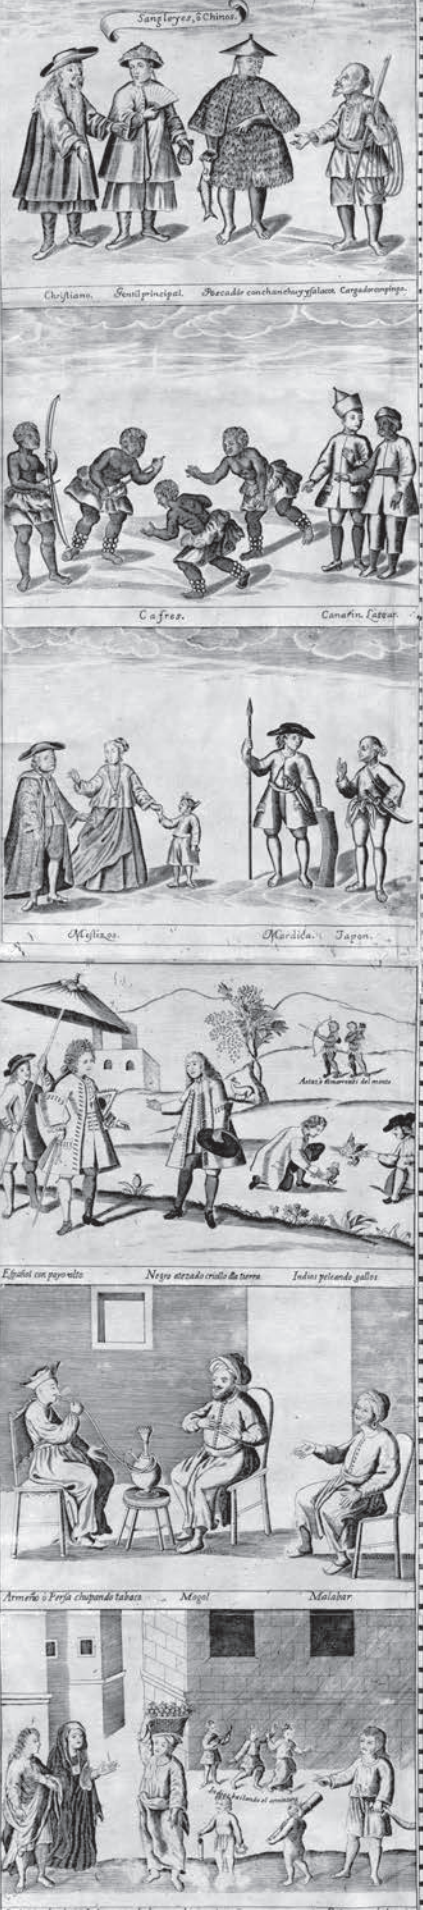 Sangleyes, ó Chinos.
Christiano. Gentil principal. Pescador con chanchuy y salacot. Cargador con pinga.
Cafres. Canarin. Lascar.
Mestizos. Mardica. Japon.
Aetas ó del monte
Español con payo alto Negro atezado criollo d la tierra Indios peleando gallos
Armeño ó Persa chupando tabaco Mogol Malabar
bailando el